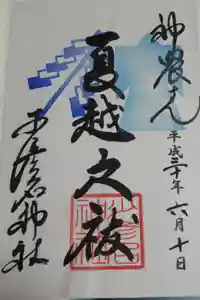 神農さん
平成三十年六月十日
夏越之祓
少彦名神社